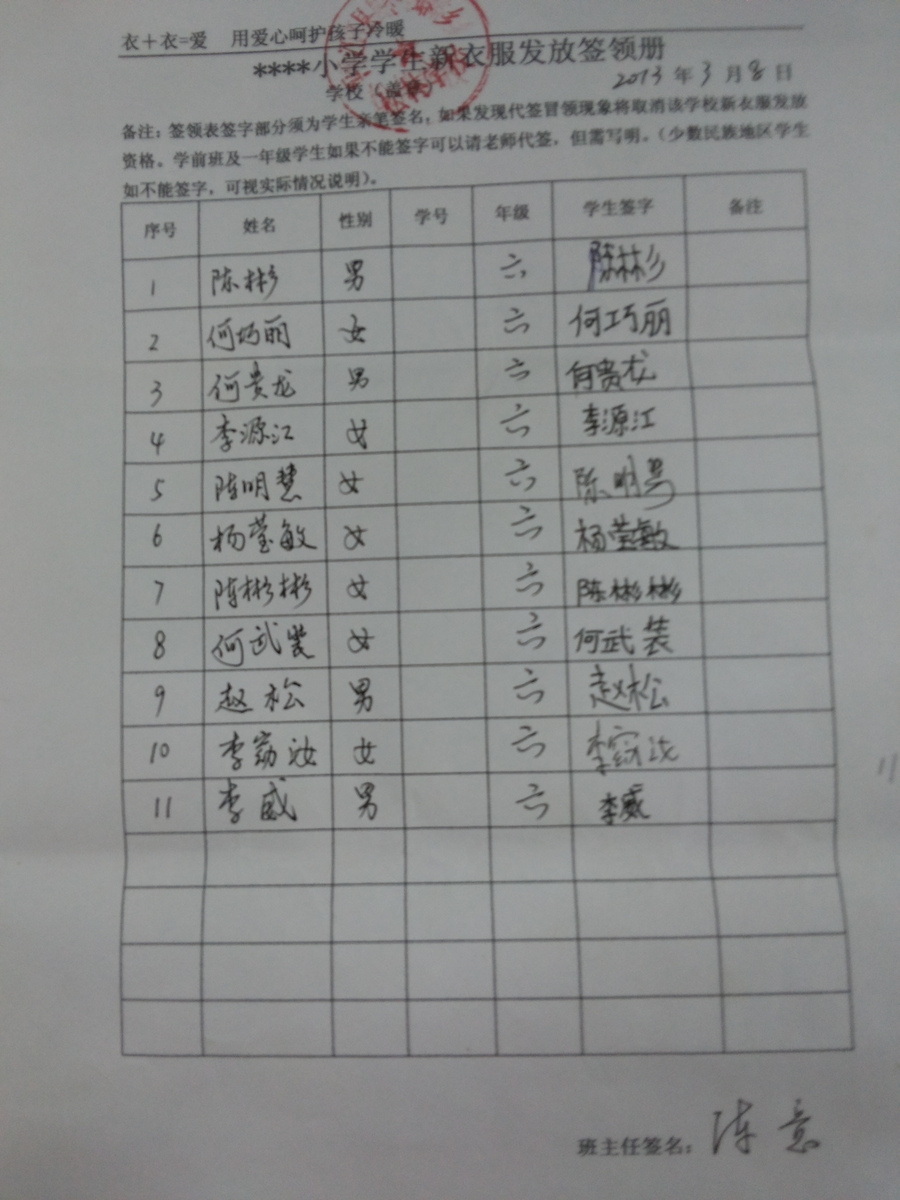 衣＋衣=爱 用爱心呵护孩子冷暖
****小学学生新衣服发放签领册
学校（盖章） 2013 年 3 月 8 日
备注：签领表签字部分须为学生亲笔签名，如果发现代签冒领现象将取消该学校新衣服发放
资格。学前班及一年级学生如果不能签字可以请老师代签，但需写明。（少数民族地区学生
如不能签字，可视实际情况说明）。
序号 姓名 性别 学号 年级 学生签字 备注
1 陈彬 男 六 陈彬
2 何巧丽 女 六 何巧丽
3 何贵龙 男 六 何贵龙
4 李源江 女 六 李源江
5 陈明慧 女 六 陈明
6 杨莹敏 女 六 杨莹敏
7 陈彬彬 女 六 陈彬彬
8 何武装 女 六 何武装
9 赵松 男 六 赵松
10 李 汝 女 六 李
11 李威 男 六 李威
班主任签名： 陈意